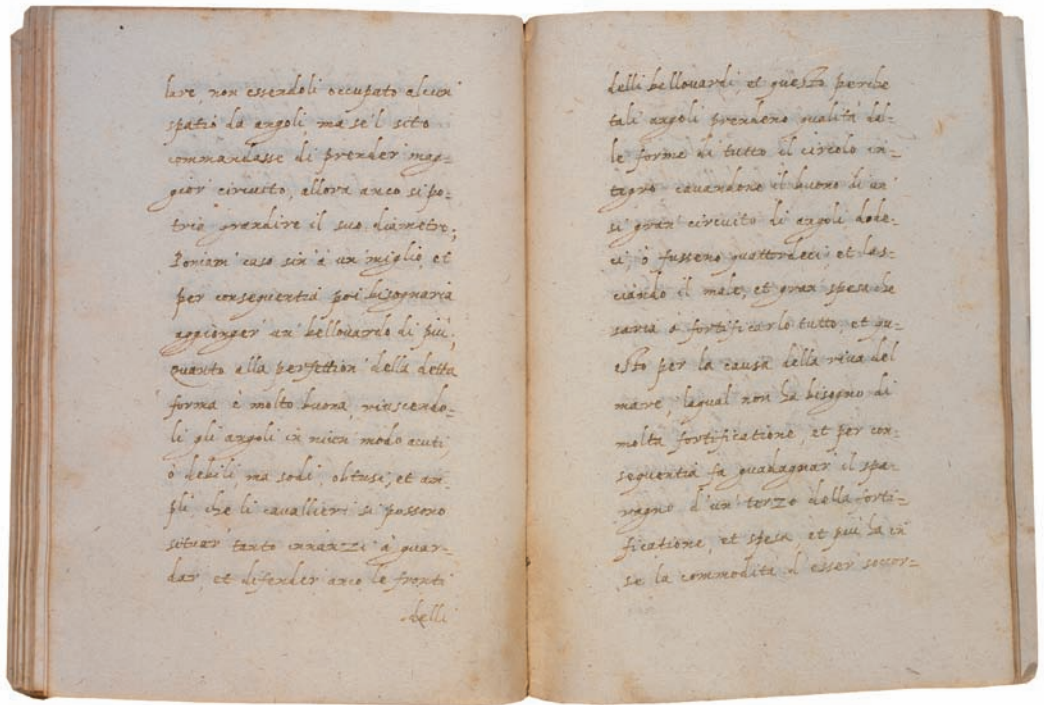 lare, non essendoli occupato alcun
spatio da angoli, ma se'l sito
commandasse di prender mag=
gior circuito, allora anco si po=
tria grandire il suo diametro;
Poniam' caso sin' à un miglio, et
per consequentia poi bisognaria
aggionger un bellouardo di più,
Quanto alla perfettion' della detta
forma è molto buona, riuscendo=
li gli angoli in niun modo acuti,
ò debili ma sodi, obtusi, et am=
pli, che li cauallieri si possono
situar tanto innanzi à guar=
dar, et difender anco le fronti
delli
delli bellouardi, et questo perche
tali angoli prendeno qualità dal=
le forme di tutto il circolo in=
tegro cauandone il buono di un'
si gran' circuito di angoli dode=
ci, ò fusseno quattordeci, et las=
ciando il male, et gran spesa che
saria a fortificarlo tutto, et qu=
esto per la causa della riua del
mare, laqual non ha bisogno di
molta fortificatione, et per con=
sequentia fa guadagnar il spa=
ragno d'un' terzo della forti=
ficatione, et spesa, et più ha in
se la commodita d'esser soccor=